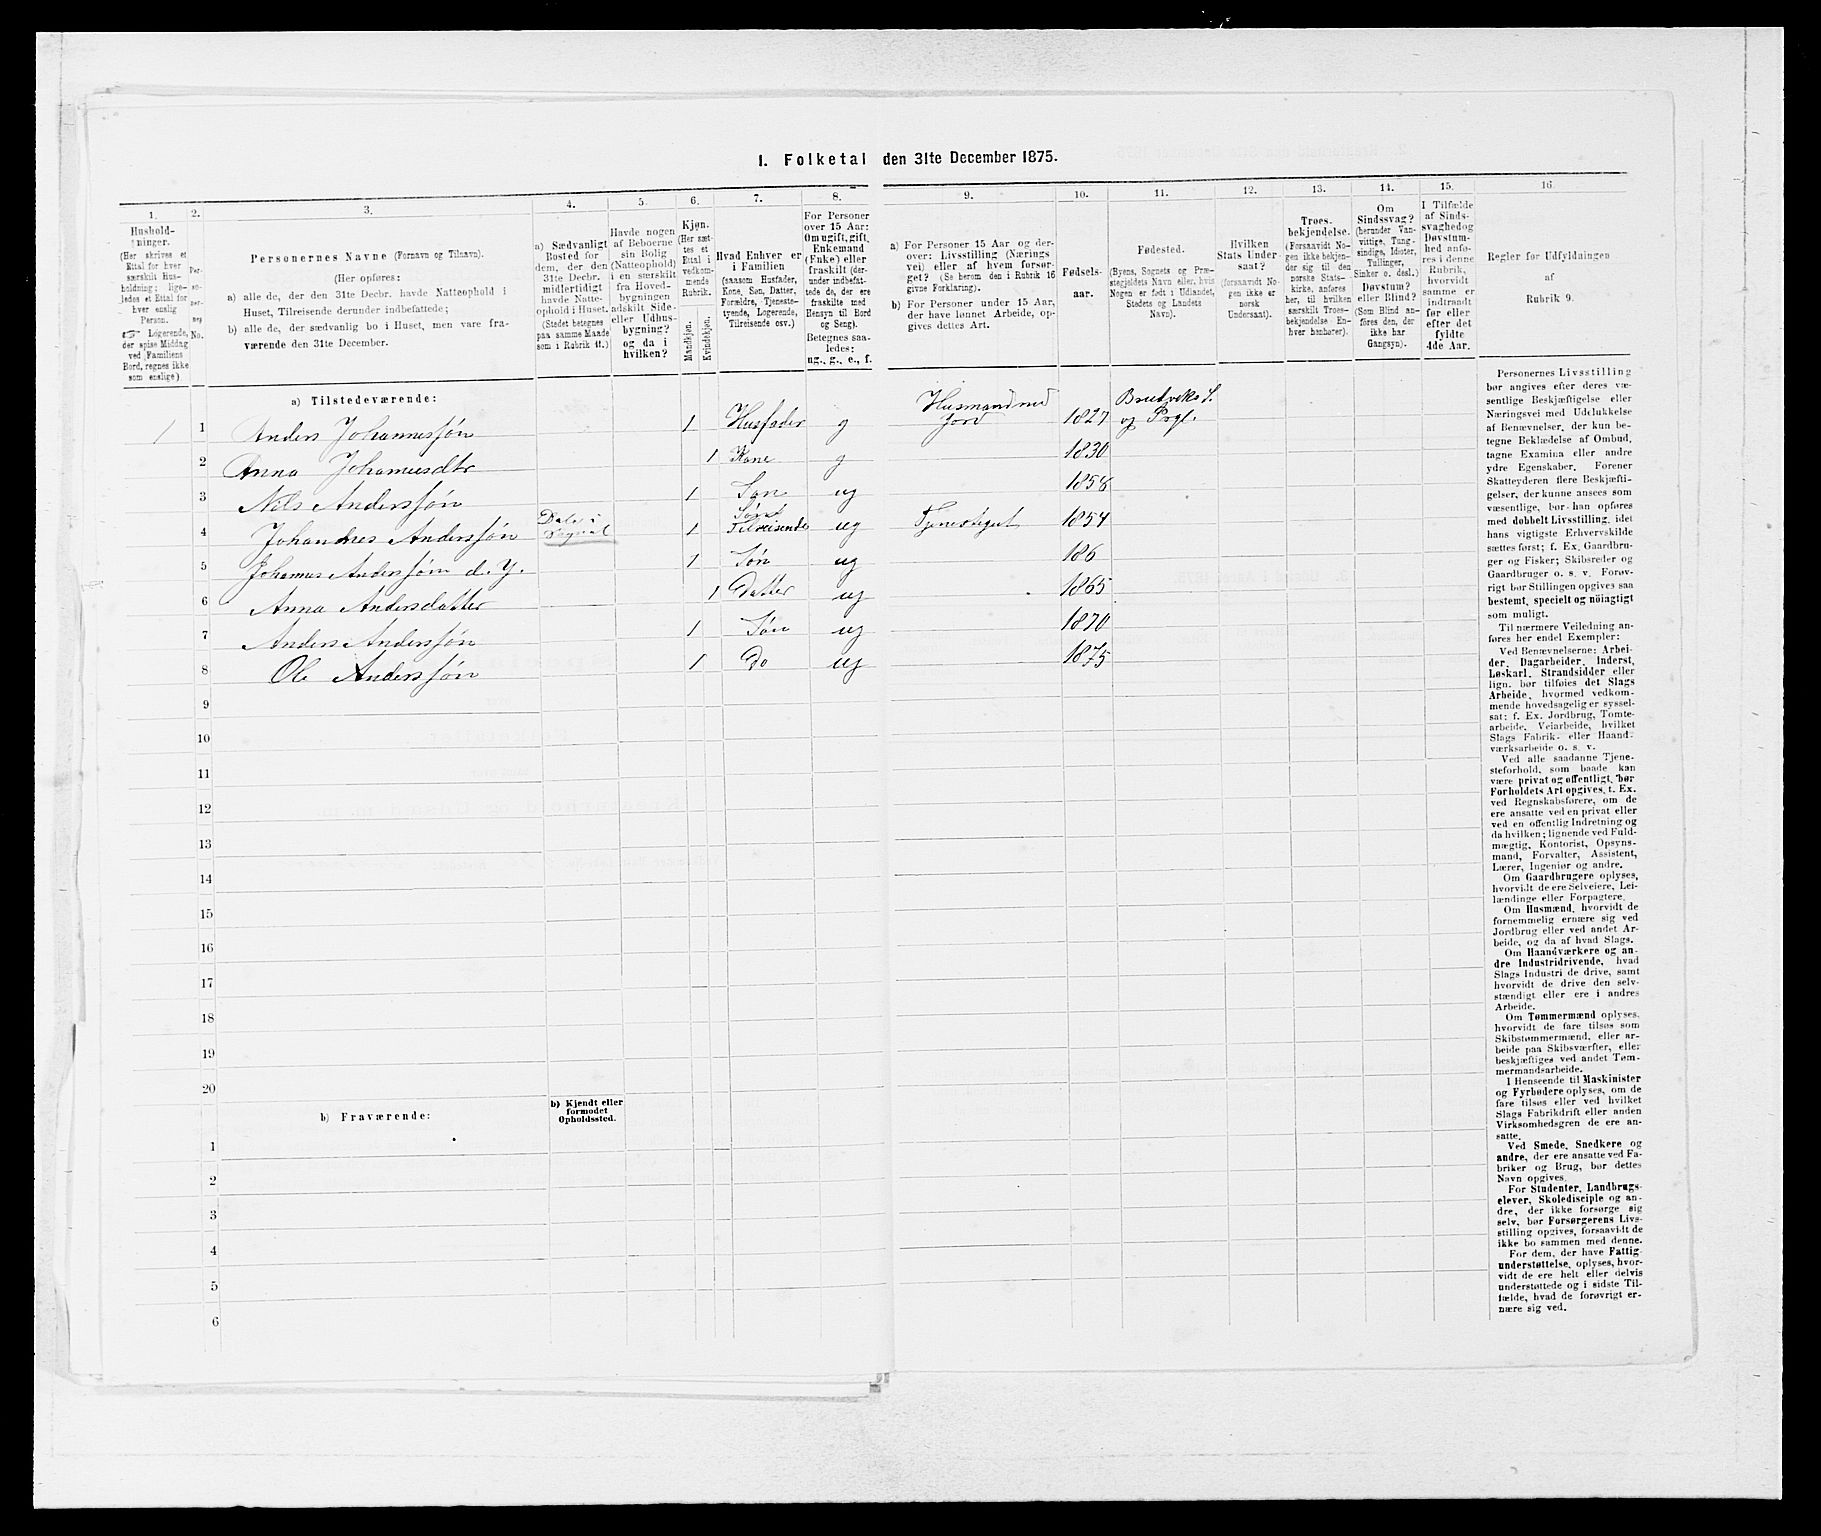 1. Folketal den 31te December 1875.
1. 2. 3. 4. 5. 6. 7. 8. 9. 10. 11. 12. 13. 14. 15. 16.
Hushold-
ninger.
(Her skrives et
Ettal for hver
særskilt Hus-
holdning; lige-
ledes et Ettal for
hver enslig
Person.
☞ Logerende,
der spise Middag
ved Familiens
Bord, regnes ikke
som enslige)
Per-
so-
ner-
nes
No.
Personernes Navne (Fornavn og Tilnavn).
(Her opføres:
a) alle de, der den 31te Decbr. havde Natteophold i
Huset, Tilreisende derunder indbefattede;
b) alle de, der sædvanlig bo i Huset, men vare fra-
værende den 31te December.
a) Sædvanligt
Bosted for
dem, der den
31te Decbr.
midlertidigt
havde Natte-
ophold i Huset.
(Stedet betegnes
paa samme Maade
som i Rubrik 11.)
Havde nogen
af Beboerne
sin Bolig
(Natteophold)
i en særskilt
fra Hoved-
bygningen
adskilt Side-
eller Udhus-
bygning?
og da i
hvilken?
Kjøn.
(Her sæt-
tes et
Ettal i
vedkom-
mende
Rubrik.
Mandkjøn.
Kvindekjøn.
Hvad Enhver er
i Familien
(saasom Husfader,
Kone, Søn, Datter,
Forældre, Tjeneste-
tyende, Logerende,
Tilreisende osv.)
For Personer
over 15 Aar:
Om ugift, gift,
Enkemand
(Enke) eller
fraskilt (der-
under indbefat-
tede de, der ere
fraskilte med
Hensyn til Bord
og Seng).
Betegnes saa-
ledes:
ug., g., e., f.
a) For Personer 15 Aar og der-
over: Livsstilling (Nærings
vei) eller af hvem forsør-
get? (Se herom den i Rubrik 16
givne Forklaring).
b) For Personer under 15 Aar,
der have lønnet Arbeide, op-
gives dettes Art.
Fødsels-
aar.
Fødested.
(Byens, Sognets og Præ-
stegjeldets Navn eller, hvis
Nogen er født i Udlandet,
Stedets og Landets
Navn).
Hvilken
Stats Under-
saat?
(forsaavidt No-
gen ikke er
norsk
Undersaat).
Troes-
bekjendelse.
(Forsaavidt No-
gen ikke bekjen-
der sig til den
norske Stats-
kirke, anføres
her, til hvilken
særskilt Troes-
bekjendelse En-
hver henhører).
Om
Sindssvag?
(herunder Van-
vittige, Tung-
sindige, Idioter,
Tullinger,
Sinker o. desl.)
Døvstum?
eller Blind?
(Som Blind an-
føres den, der
ikke har
Gangsyn).
I Tilfælde
af Sinds-
svaghed og
Døvstum-
hed anfø-
res i denne
Rubrik,
hvorvidt
samme er
indtraadt
før eller
efter det
fyldte
4de Aar.
Regler for Udfyldningen
af
Rubrik 9.
a) Tilstedeværende:
1 1 Anders Johannesjøn 1 Husfader g Husmand med Jord 1827 Brudviks S. og Pregl.
2 Anna Johannesdtr 1 Kone g 1830
3 Nils Andersjøn 1 Søn ug 1858
4 Johannes Andersjøn Dale i 1 Sønt Tilreisende ug Tjenestegut 1854
5 Johannes Andersjøn d. y. 1 Søn ug 186
6 Anna Andersdatter 1 Datter ug 1865
7 Anders Andersjøn 1 Søn ug 1870
8 Ole Andersjøn 1 Do ug 1875
9
10
11
12
13
14
15
16
17
18
19
20
b) Fraværende:
b) Kjendt eller
formodet
Opholdssted.
1
2
3
4
5
6
Personernes Livsstilling
bør angives efter deres væ-
sentlige Beskjæftigelse eller
Næringsvei med Udelukkelse
af Benævnelser, der kun be-
tegne Beklædelse af Ombud,
tagne Examina eller andre
ydre Egenskaber. Forener
Skatteyderen flere Beskjæfti-
gelser, der kunne ansees som
væsentlige, bør han opføres
med dobbelt Livsstilling, idet
hans vigtigste Erhvervskilde
sættes først; f. Ex. Gaardbru-
ger og Fisker; Skibsreder og
Gaardbruger o. s. v. Forøv-
rigt bør Stillingen opgives saa
bestemt, specielt og nöiagtigt
som muligt.
Til nærmere Veiledning an-
føres her endel Exempler:
Ved Benævnelserne: Arbei-
der, Dagarbeider, Inderst,
Løskarl, Strandsidder eller
lign. bør tilføies det Slags
Arbeide, hvormed vedkom-
mende hovedsagelig er syssel-
sat; f. Ex. Jordbrug, Tomte-
arbeide, Veiarbeide, hvilket
Slags Fabrik- eller Haand-
værksarbeide o. s. v.
Ved alle saadanne Tjene-
steforhold, som baade kan
være privat og offentligt, bør
Forholdets Art opgives, t. Ex.
ved Regnskabsførere, om de
ere ansatte ved en privat eller
ved en offentlig Indretning og
da hvilken; lignende ved Fuld-
mægtig, Kontorist, Opsyns-
mand, Forvalter, Assistent,
Lærer, Ingeniør og andre.
Om Gaardbrugere oplyses,
hvorvidt de ere Selveiere, Lei-
lændinge eller Forpagtere.
Om Husmænd, hvorvidt de
fornemmelig ernære sig ved
Jordbrug eller ved andet Ar-
beide, og da af hvad Slags.
Om Haandværkere og an-
dre Industridrivende, hvad
Slags Industri de drive, samt
hvorvidt de drive den selv-
stændigt eller ere i andres
Arbeide.
Om Tømmermænd oplyses,
hvorvidt de fare tilsøs som
Skibstømmermænd, eller ar-
beide paa Skibsværfter, eller
beskjæftiges ved andet Tøm-
mermandsarbeide.
I Henseende til Maskinister
og Fyrbødere oplyses, om de
fare tilsøs eller ved hvilket
Slags Fabrikdrift eller anden
Virksomhedsgren de ere an-
satte.
Ved Smede, Snedkere og
andre, der ere ansatte ved Fa-
briker og Brug, bør dettes
Navn opgives.
For Studenter, Landbrugs-
elever, Skoledisciple og an-
dre, der ikke forsørge sig
selv, bør Forsørgerens Livs-
stilling opgives, forsaavidt de
ikke bo sammen med denne.
For dem, der have Fattig-
understøttelse, oplyses, hvor-
vidt de ere helt eller delvis
understøttede og i sidste Til-
fælde, hvad de forøvrigt er-
nære sig ved.